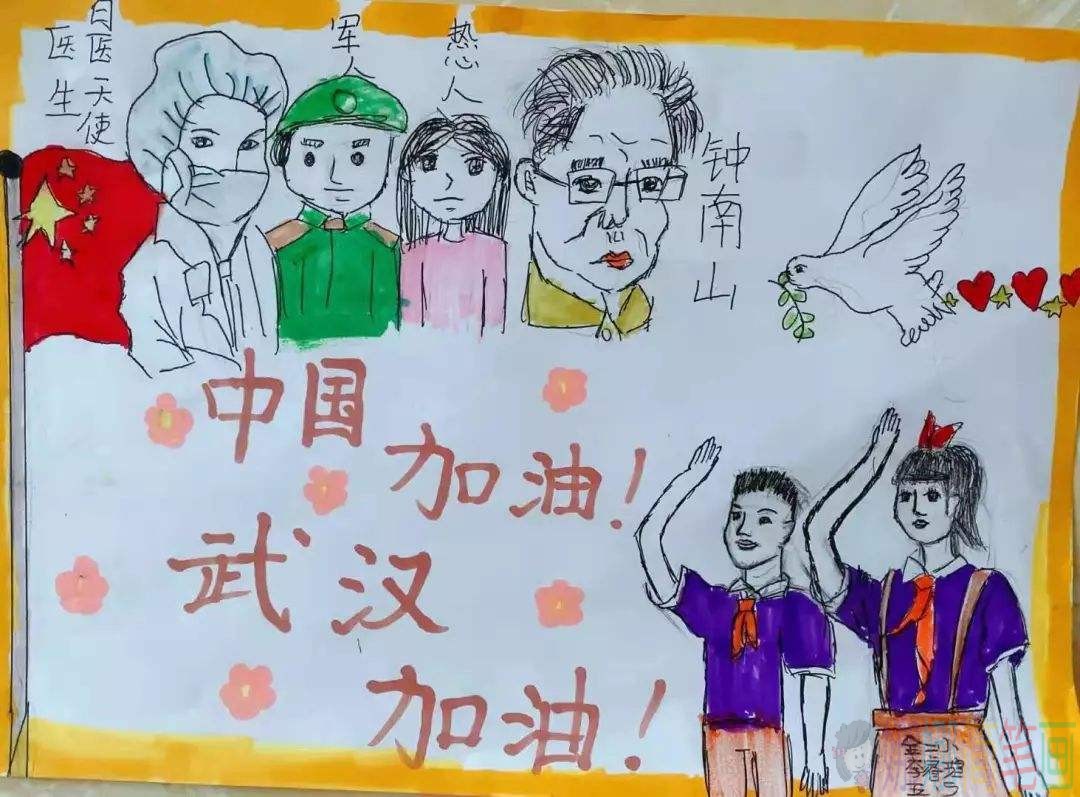 白医天使
医生
军人
热心人
钟南山
中国
加油!
武汉
加油!
笔画